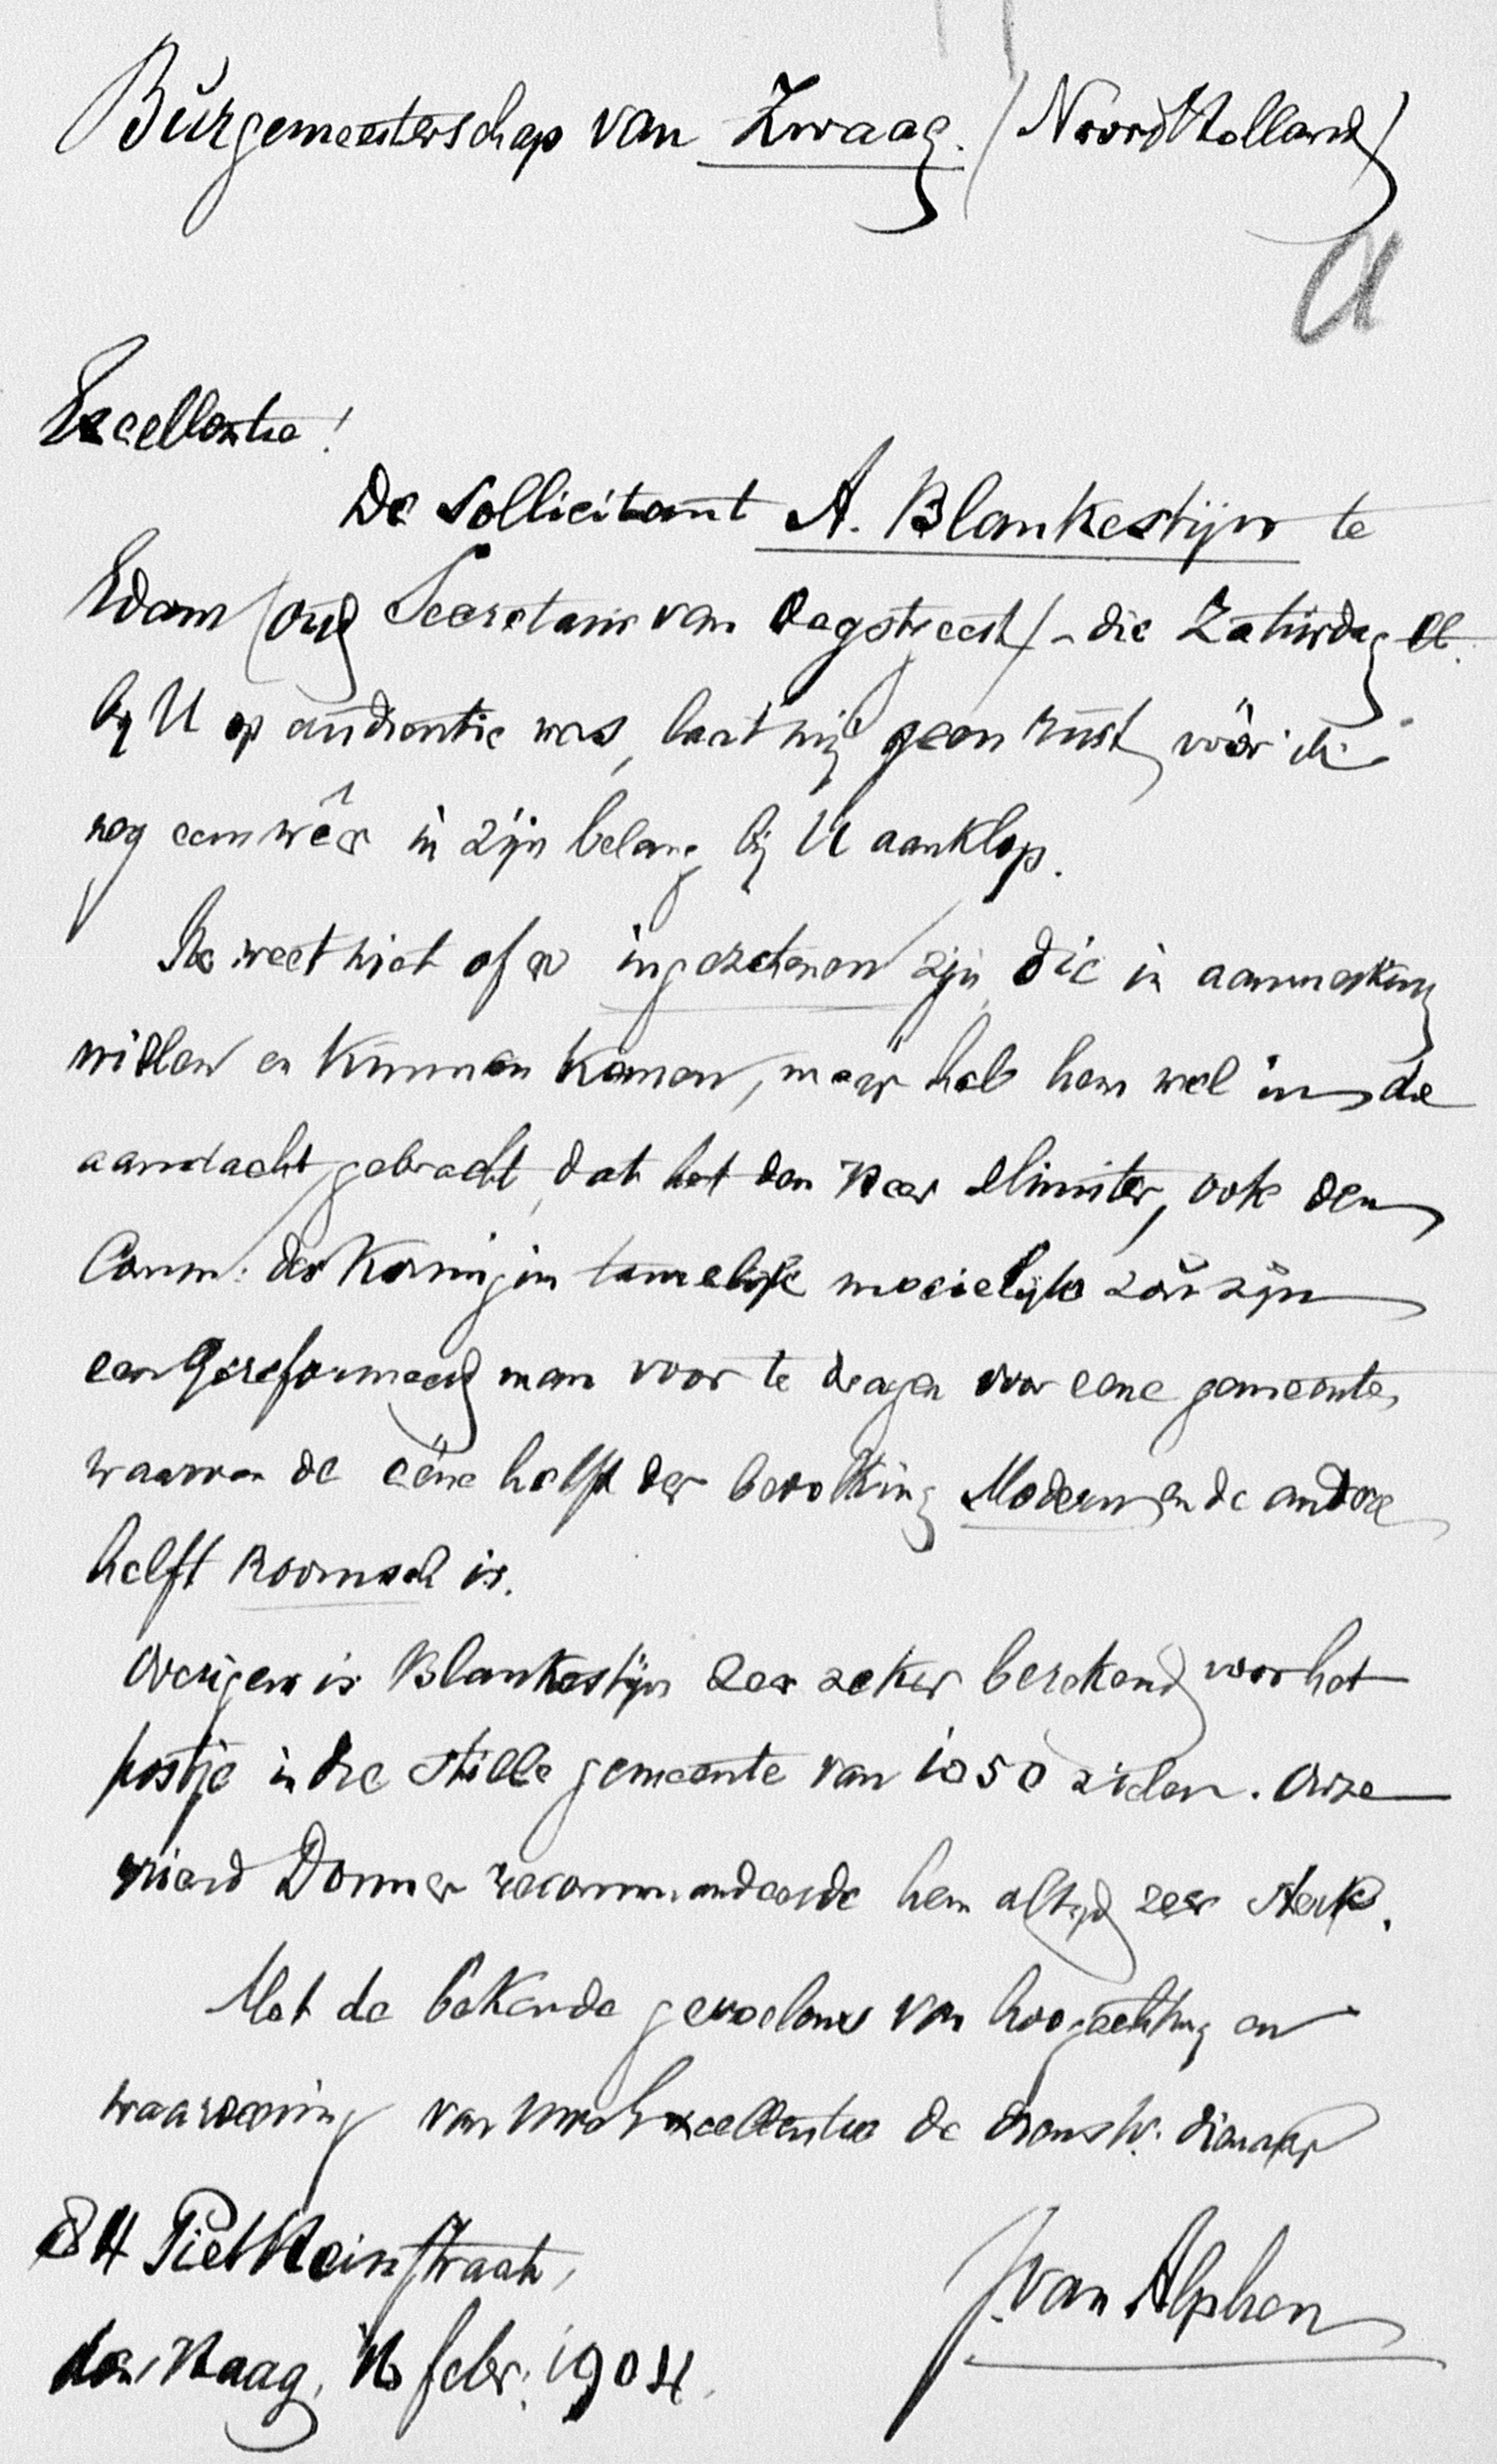 Burgemeesterschap van Zwaag. (Noord Holland)
a
Excellentie!
De Sollicitant A. Blankestijn te
Edam (oud Secretaris van Oegstgeest) - die Zaturdag ll.
bij U op audientie was, laat mij geen rust, vóór ik
nog eens wêer in zijn belang bij U aanklop.
Ik weet niet of er ingezetenen zijn die in aanmerking
willen en kunnen komen, maar heb hem wel in de
aandacht gebracht, dat het den Heer Minister, ook den
Comm: der Koningin tamelijk moeielijk zou zijn
een Gereformeerd man voor te dragen voor eene gemeente,
waarvan de eéne helft der bevolking Modern en de andere
helft Roomsch is.
Overigens is Blankestijn zeer zeker berekend voor het
postje in die stille gemeente van 1050 zielen. Onze
vriend Donner recommandeerde hem altijd zeer sterk.
Met de bekende gevoelens van hoogachting en
waardeering van Uwe Excellentie de dienstw. dienaar
84 Piet Heinstraat,
den Haag, 16 febr: 1904.
J. van Alphen